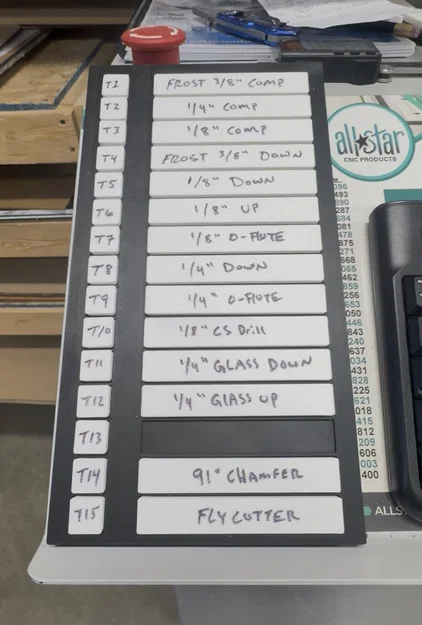 T1 FROST 3/8" COMP
T2 1/4" COMP
T3 1/8" COMP
T4 FROST 3/8" DOWN
T5 1/8" DOWN
T6 1/8" UP
T7 1/8" O-FLUTE
T8 1/4" DOWN
T9 1/4" O-FLUTE
T10 1/8" CS Drill
T11 1/4" GLASS DOWN
T12 1/4" GLASS UP
T13
T14 91° CHAMFER
T15 FLYCUTTER
all★star
CNC PRODUCTS
096
493
890
287
684
081
478
875
271
668
065
462
859
256
653
050
446
843
240
637
034
431
828
225
621
018
415
812
209
606
003
400
ALLS